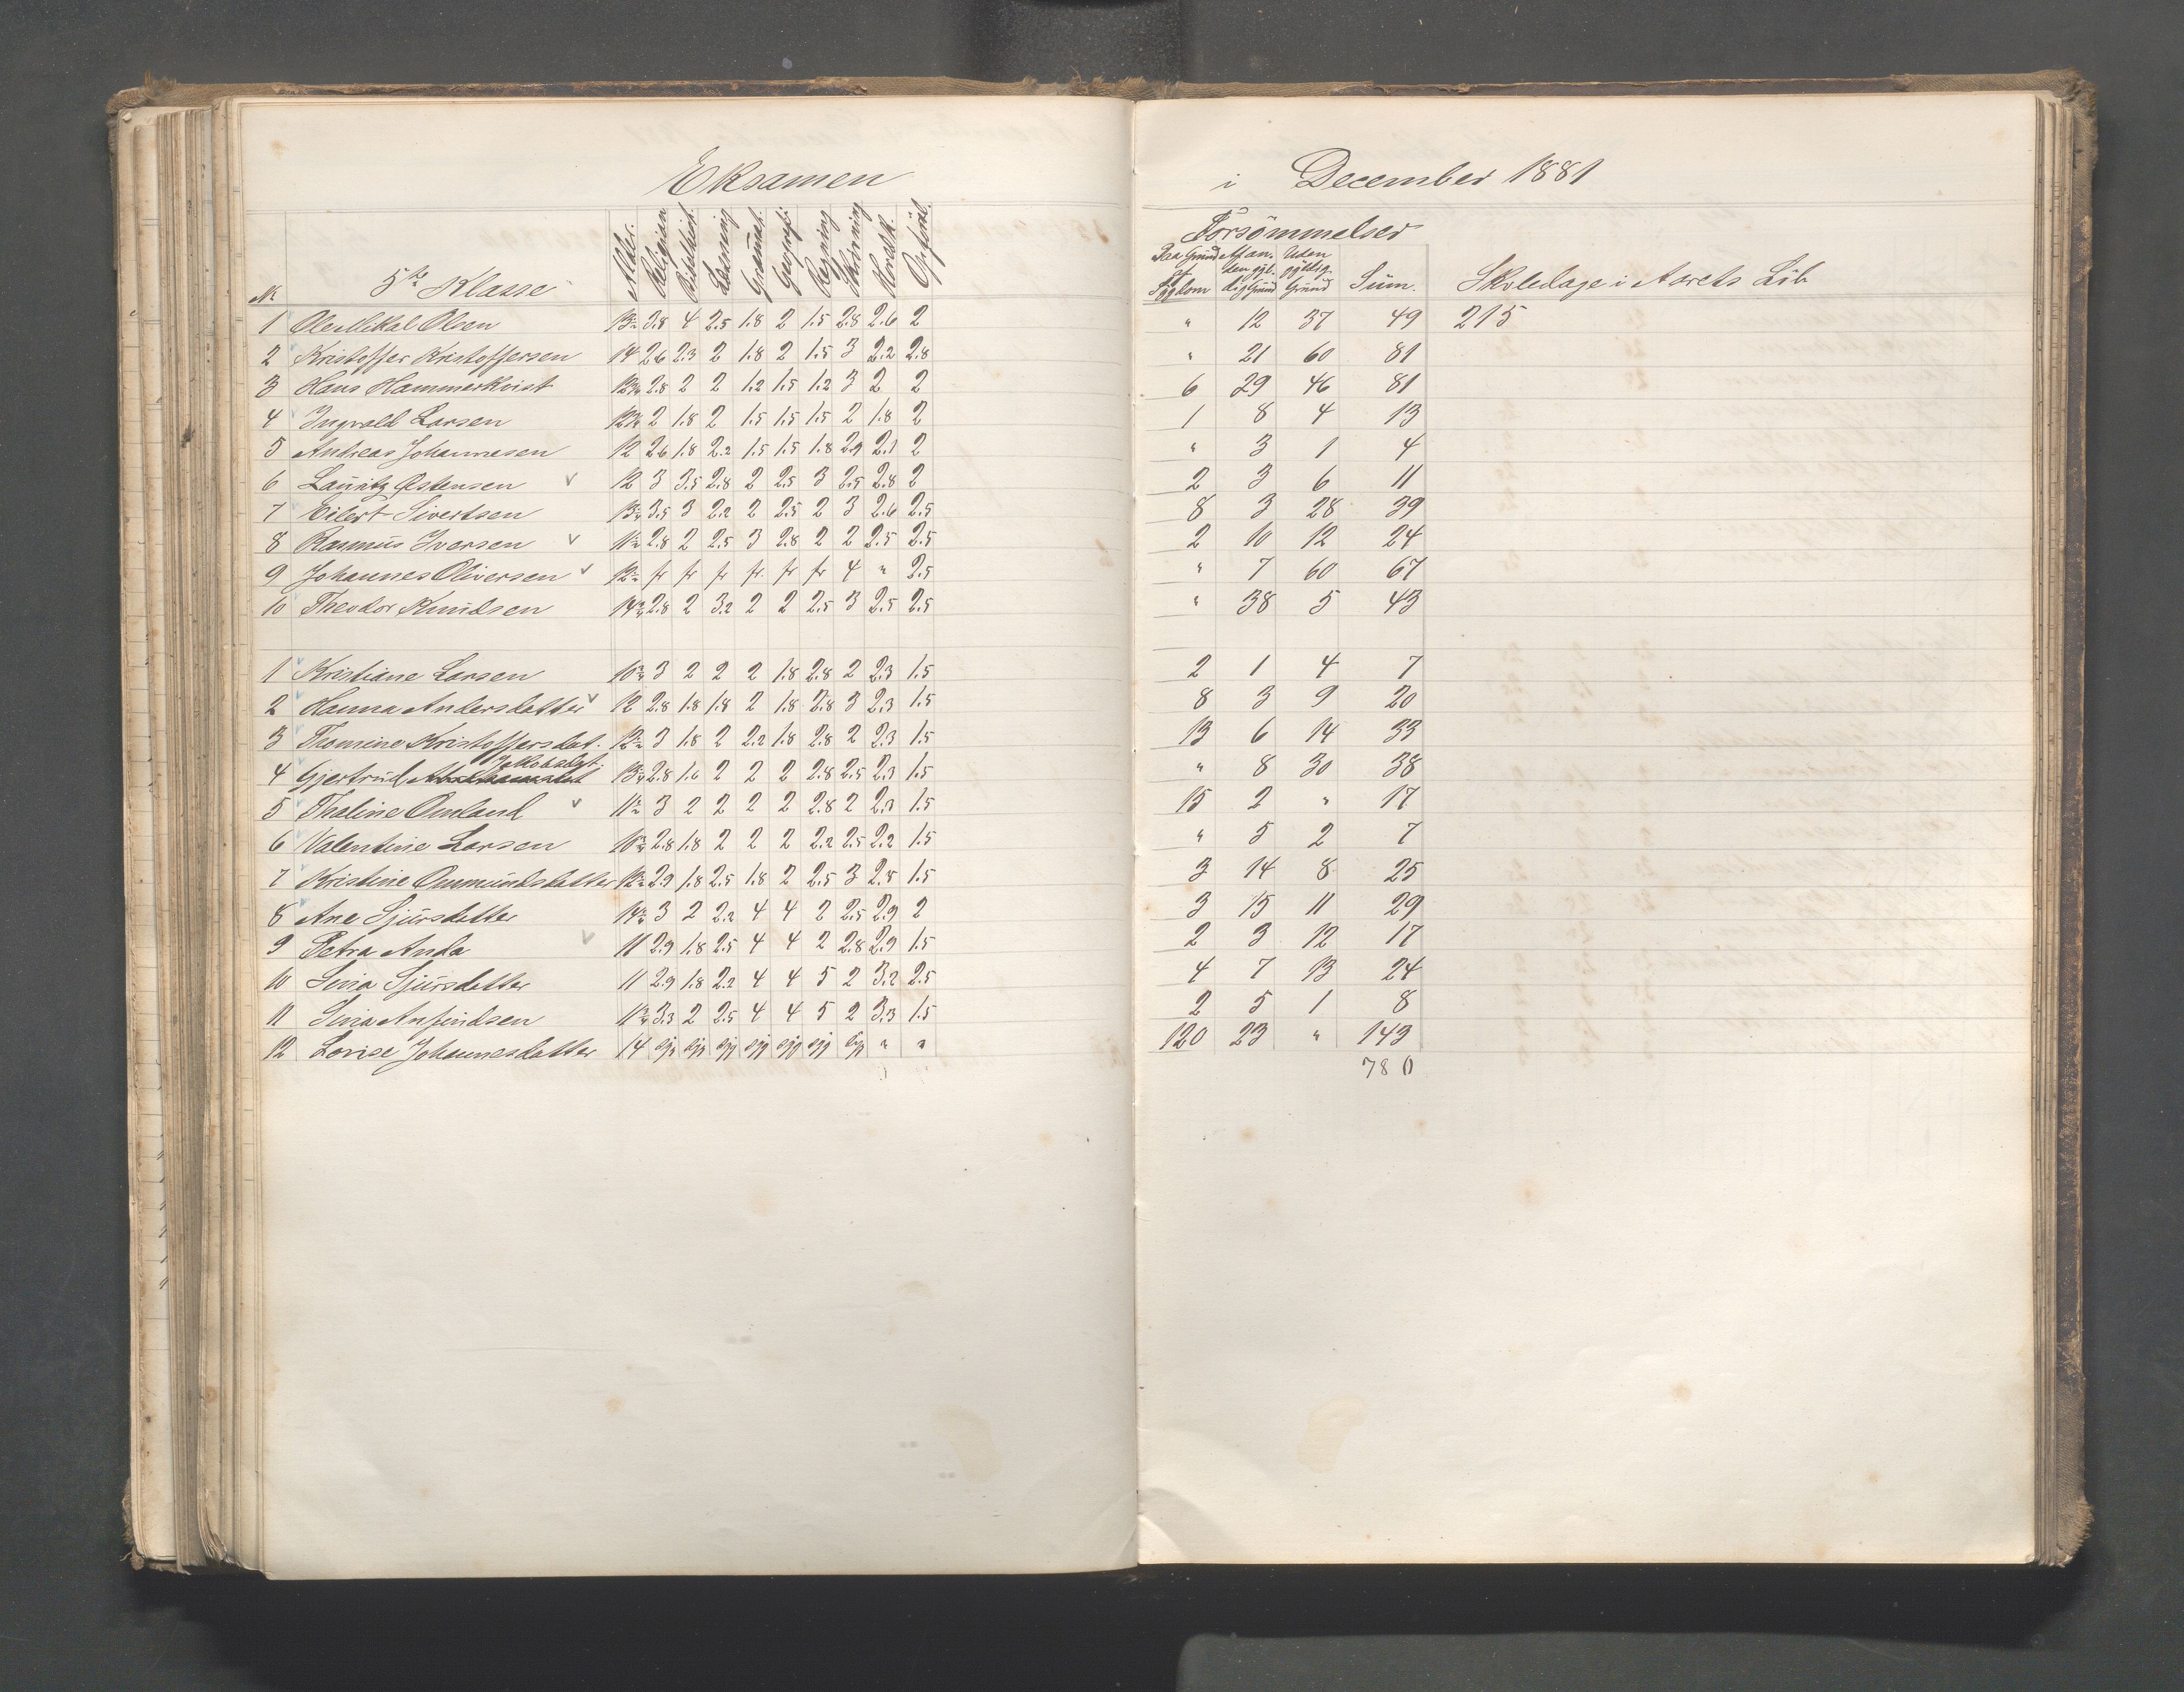 Eksamen
i December 1881
Forsömmelser
No 5te Klasse Alder. Religion Bibelhist. Læsning Gramat. Geografi Regning Skrivning Hovedk. Opförsel.
Paa Grund af Sygdom Af an. den gyl. dig Grund Uden gyldig Grund Sum. Skoledage i Aarets Löb
1 Ole Mikal Olsen 3.8 4 2.5 1.8 2 1.5 2.8 2.6 2 " 12 37 49 215
2 Kristoffer Kristoffersen 14 2.6 2.3 2 1.8 2 1.5 3 2.2 2.8 " 21 60 81
3 Hans Hammerkvist 2.8 2 2 1.2 1.5 1.2 3 2 2 6 29 46 81
4 Ingvald Larsen 2 1.8 2 1.5 1.5 1.5 2 1.8 2 1 8 4 13
5 Andreas Johannesen 12 2.6 1.8 2.2 1.5 1.5 1.8 2.9 2.1 2 " 3 1 4
6 Lauritz Østensen v 12 3 3.5 2.8 2 2.5 3 2.5 2.8 2 2 3 6 11
7 Eilert Sivertsen 3.5 3 2.2 2 2.5 2 3 2.6 2.5 8 3 28 39
8 Rasmus Iversen v 2.8 2 2.5 3 2.8 2 2 2.5 2.5 2 10 12 24
9 Johannes Oliversen v fr fr fr fr fr fr 4 " 2.5 " 7 60 67
10 Theodor Knudsen 2.8 2 3.2 2 2 2.5 3 2.5 2.5 " 38 5 43
1 Kristiane Larsen 3 2 2 2 1.8 2.8 2 2.3 1.5 2 1 4 7
2 Hanna Andersdatter v 12 2.8 1.8 1.8 2 1.8 2.8 3 2.3 1.5 8 3 9 20
3 Thomine Kristoffersdat. 3 1.8 2 2.2 1.8 2.8 2 2.3 1.5 13 6 14 33
4 Gjertrud Jakobsdat. 2.8 1.6 2 2 2 2.8 2.5 2.3 1.5 " 8 30 38
5 Thaline Omland v 3 2 2 2 2 2.8 2 2.3 1.5 15 2 " 17
6 Valentine Larsen 2.8 1.8 2 2 2 2.2 2.5 2.2 1.5 " 5 2 7
7 Kristine Ommundsdatter 2.9 1.8 2.5 1.8 2 2.5 3 2.8 1.5 3 14 8 25
8 Ane Sjursdatter 3 2 2.2 4 4 2 2.5 2.9 2 3 15 11 29
9 Petra Anda v 11 2.9 1.8 2.5 4 4 2 2.8 2.9 1.5 2 3 12 17
10 Sivia Sjursdatter 11 2.9 1.8 2.2 4 4 5 2 3.2 2.5 4 7 13 24
11 Sivia Anfindsen 3.3 2 2.5 4 4 5 2 3.3 1.5 2 5 1 8
12 Lovise Johannesdatter 14 syg syg syg syg syg syg syg " " 120 23 " 143
780